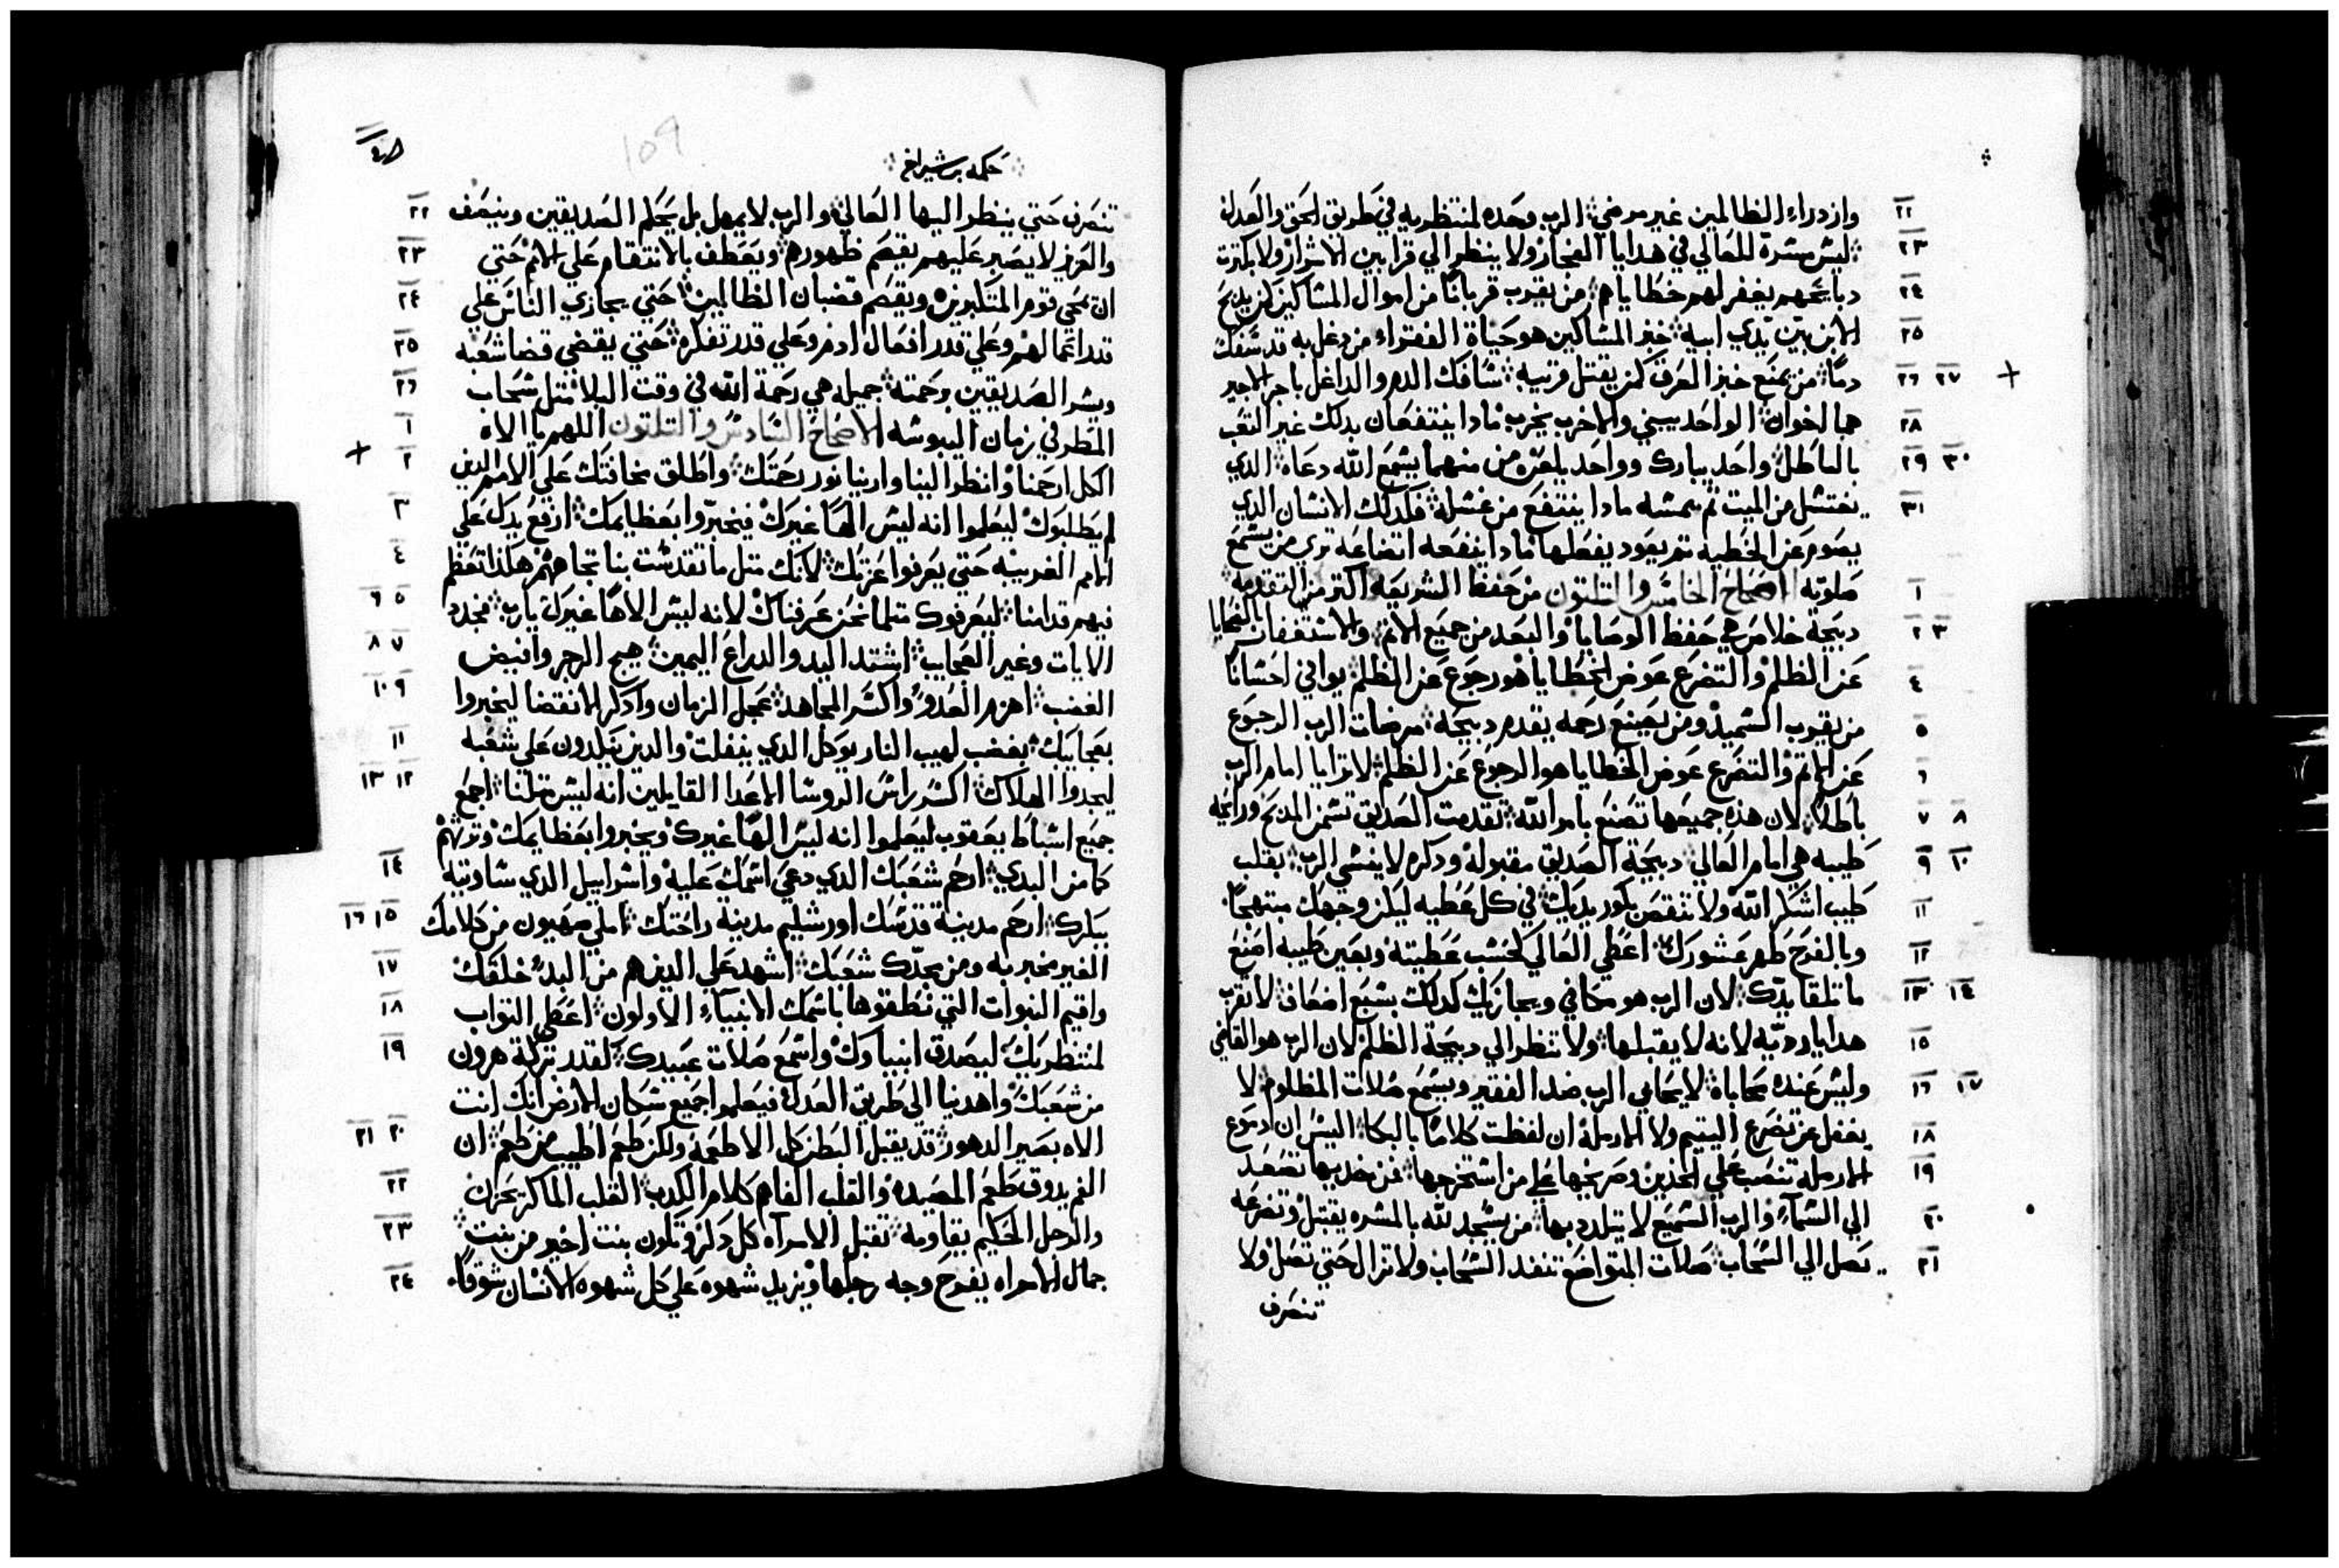 ٢٢ وازدراء الظالمين غير مرضي ∴ الرب وحده لمنتظريه في طريق الحق والعدل
٢٣ ∴ ليس مسرة للعالي في هدايا الفجار ولا ينظر الي قرابين الاشرار ولا بكثرت
٢٤ دبايحهم يغفر لهم خطاياهم ∴ من يقرب قربانًا من اموال المساكين كمن يدبح
٢٥ الابن بين يدي ابيه ∴ خبز المساكين هو حياة الفقراء من دغل به قد سفك
+ ٢٧ ٢٦ دمًا ∴ من يمنع خبز العرق كمن يقتل قريبه ∴ سافك الدم والداغل باجر الاجير
٢٨ هما اخوان ∴ الواحد يبني والاخر يخرب مادا ينتفعان بدلك غير التعب
٣٠ ٢٩ بالباطل ∴ واحد يبارك وواحد يلعن من منهما يسمع الله دعاه ∴ الدي
٣١ يغتسل من الميت ثم يمسه مادا ينتفع من غسله ∴ فكدلك الانسان الدي
يصوم عن الخطيه تم يعود يفعلها مادا ينفعه اتضاعه تري من يسمع
١ صلوته الاصحاح الخامس والتلتون من حفظ الشريعه اكتر من التقدمه
٣ ٢ دبيحة خلاص هي حفظ الوصايا والبعد من جميع الاتم ∴ والاستغفار الضحايا
٤ عن الظلم والتضرع عوض الخطايا هو رجوع عن الظلم ∴ يوافي احسانًا
٥ من يقرب السميد ومن يصنع رحمه يقدم دبيحة ∴ مرضات الرب الرجوع
٦ عن الاتم والتضرع عوض الخطايا هو الرجوع عن الظلم ∴ لا ترايا امام الرب
٨ ٧ باطلًا ∴ لان هده جميعها تصنع بامر الله ∴ تقدمت الصديق تسمن المدبح ورايحه
١٠ ٩ طيبه هي امام العالي ∴ دبيحة الصديق مقبوله ودكره لا ينسي الرب ∴ بقلب
١١ طيب اشكر الله ولا تنقص بكور يديك ∴ في كل عطيه ليكن وجهك مبتهجًا
١٢ وبالفرح طهر عشورك ∴ اعطي العالي كحسب عطيته وبعين طيبه اصنع
١٤ ١٣ ما تلقا يدك ∴ لان الرب هو مكافي ويجازيك كدلك بسبع اضعاف ∴ لا تقرب
١٥ هدايا رديه لانه لا يقبلها ∴ ولا تنظر الي دبيحة الظلم لان الرب هو القاضي
١٧ ١٦ وليس عنده محاباة ∴ لا يحابي الرب ضد الفقير ويسمع صلات المظلوم ∴ لا
١٨ يغفل عن تضرع اليتيم ولا الارملة ان لفظت كلامًا بالبكا ∴ اليس ان دموع
١٩ الارملة تنصب علي الخدين وصريخها علي من استخرجها ∴ فمن خديها تصعد
٢٠ الي السماء والرب السميع لا يتلدد بها ∴ من يسجد لله بالمسره يقتبل وتضرعه
٢١ يصل الي السحاب ∴ صلات المتواضع تنفد السحاب ولا تزال حتي تصل ولا
تنصرف
∴ حكمه برشيراخ ∴
109
٢٢ تنصرف حتي ينظر اليها العالي ∴ والرب لا يمهل بل يحكم الصديقين وينصف
٢٣ والعزيز لا يصبر عليهم يقصم ظهورهم ∴ ويعطف بالانتقام علي الامم حتي
٢٤ ان يمحي قوم المتكبرين ويقصم قضبان الظالمين ∴ حتي يجازي الناس علي
٢٥ قدر اعمالهم وعلي قدر افعال ادم وعلي قدر تفكره ∴ حتي يقضي قضا شعبه
٢٦ ويسر الصديقين برحمته ∴ جميله هي رحمة الله في وقت البلا متل سحاب
١ المطر في زمان اليبوسه الاصحاح السادس والتلتون اللهم يا الاه
+ ٢ الكل ارحمنا وانظر الينا وارينا نور رحمتك ∴ واطلق مخافتك علي الامم الدين
٣ لم يطلبوك ليعلموا انه ليس الهًا غيرك فيخبروا بعظايمك ∴ ارفع يدك علي
٤ الامم الغريبه حتي يعرفوا عزتك ∴ لانك متل ما تقدست بنا تجاههم هكدا تعظم
٦ ٥ فيهم قدامنا ∴ ليعرفوك متلما نحن عرفناك لانه ليس الاهًا غيرك يارب ∴ فجدد
٨ ٧ الايات وغير العجايب ∴ اشتد اليد والدراع اليمين ∴ هيج الرجز وافيض
١٠ ٩ الغضب ∴ اهزم العدو واكسر المجاهد ∴ عجل الزمان وادكر الانقضا ليخبروا
١١ بعجايبك ∴ بغضب لهيب النار يوكل الدي ينفلت والدين ينكدون علي شعبه
١٣ ١٢ ليجدوا الهلاك ∴ اكسر راس الروسا الاعدا القايلين انه ليس متلنا ∴ اجمع
جميع اسباط يعقوب ليعلموا انه ليس الهًا غيرك ويخبروا بعظايمك وترتهم
١٤ كما من البدي ∴ ارحم شعبك الدي دعي اسمك عليه واسراييل الدي ساويته
١٦ ١٥ ببكرك ∴ ارحم مدينة قدسك اورشليم مدينة راحتك ∴ املي صهيون من كلامك
١٧ الغير مخبر به ومن مجدك شعبك ∴ اشهد علي الدين هم من البدء خلقك
١٨ واقيم النبوات التي نطقوها باسمك الانبياء الاولون ∴ اعطي التواب
١٩ لمنتظريك ليصدق انبياوك ∴ واسمع صلات عبيدك ∴ كقدر بركة هرون
من شعبك ∴ واهدنا الي طريق العدل ∴ فيعلموا جميع سكان الارض انك انت
٢١ ٢٠ الاه بصير الدهور ∴ قد يقبل البطن كل الاطعمه ولكن طعم اطيب من طعم ∴ ان
٢٢ الفم يدوق طعم المصيده والقلب الفاهم كلام الكدب ∴ القلب الماكر يحزن
٢٣ والرجل الحكيم يقاومه ∴ تقبل الامراه كل دكر وتكون بنت اخير من بنت ∴
٢٤ جمال الامراه يفرح وجه رجلها ويزيد شهوه علي كل شهوه الانسان شوقًا ∴